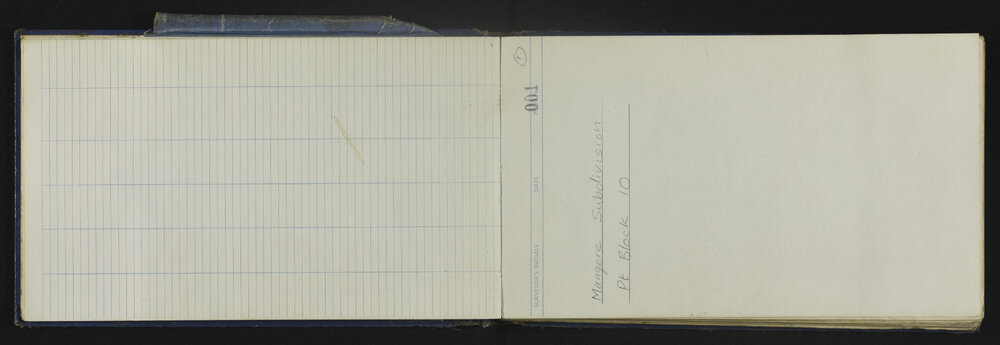 ①
001
SURVEYOR'S INITIALS DATE
Mangere Subdivision
Pt Block 10